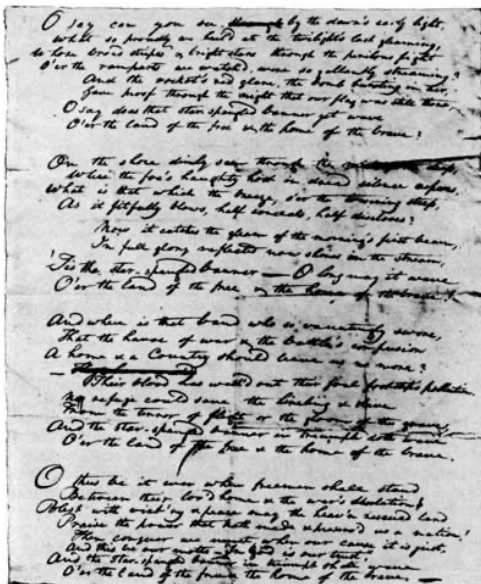 O say can you see by the dawn's early light,
What so proudly we hail'd at the twilight's last gleaming,
Whose broad stripes & bright stars through the perilous fight
O'er the ramparts we watch'd, were so gallantly streaming?
And the rocket's red glare, the bomb bursting in air,
Gave proof through the night that our flag was still there,
O say does that star-spangled banner yet wave
O'er the land of the free & the home of the brave?
On the shore dimly seen through the deep,
Where the foe's haughty host in dread silence reposes,
What is that which the breeze, o'er the towering steep,
As it fitfully blows, half conceals, half discloses?
Now it catches the gleam of the morning's first beam,
In full glory reflected now shines in the stream,
'Tis the star-spangled banner — O long may it wave
O'er the land of the free & the home of the brave!
And where is that band who so vauntingly swore,
That the havoc of war & the battle's confusion
A home & a Country should leave us no more?
—
Their blood has wash'd out their foul footstep's pollution.
No refuge could save the hireling & slave
From the terror of flight or the gloom of the grave,
And the star-spangled banner in triumph doth wave
O'er the land of the free & the home of the brave.
O thus be it ever when freemen shall stand
Between their lov'd home & the war's desolation!
Blest with vict'ry & peace may the heav'n rescued land
Praise the power that hath made & preserv'd us a nation!
Then conquer we must, when our cause it is just,
And this be our motto — "In God is our trust,"
And the star-spangled banner in triumph shall wave
O'er the land of the free & the home of the brave.